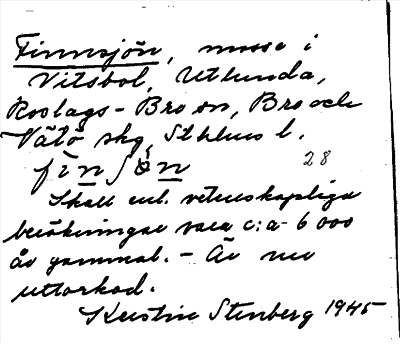 Finnsjön, mosse i
Vitsbol, Utlunda,
Roslags-Bro sn, Bro och
Vätö skg, Sthlms l.
fìnʃön 28
Skall enl. vetenskapliga
beräkningar vara c:a 6 000
år gammal. - Är nu
uttorkad.
Kerstin Stenberg 1945